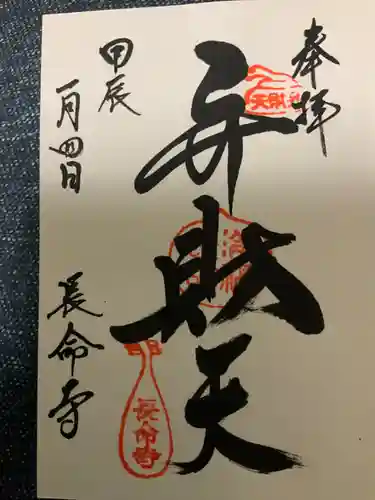 奉拝
弁財天
甲辰
一月四日
長命寺
長命寺